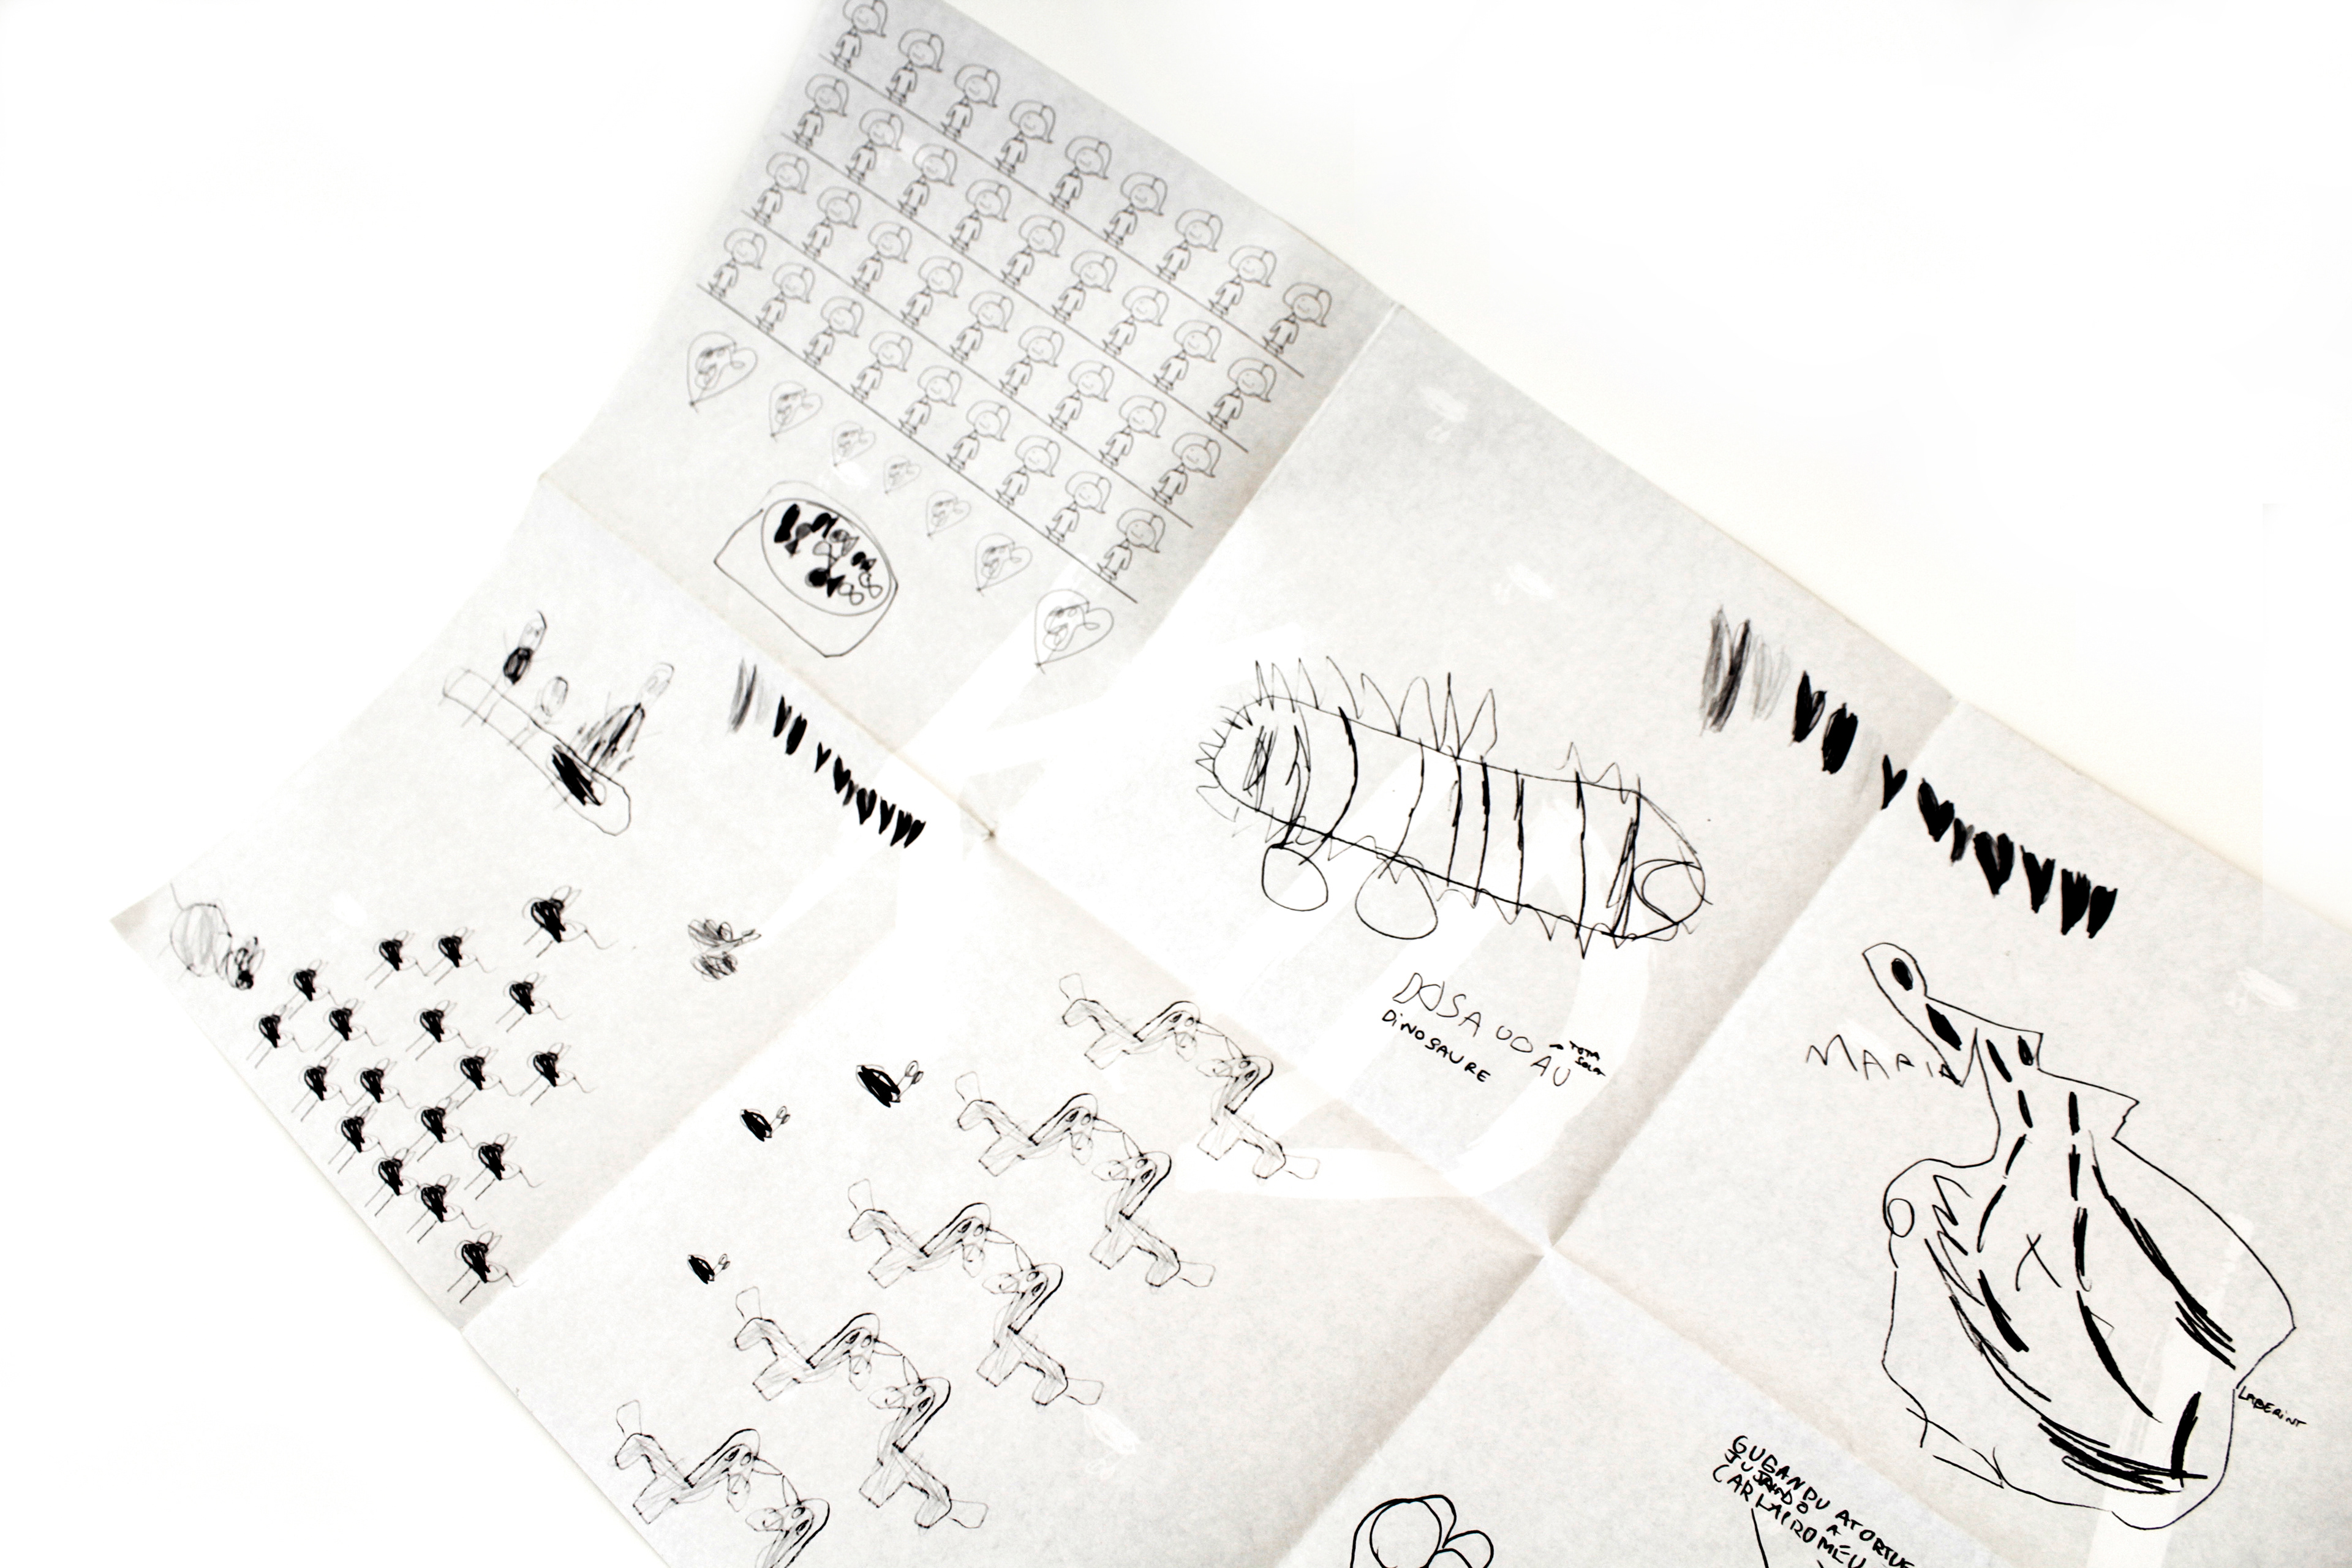 DINOSAURE
TOTA
SOLA
MARIA
LABERINT
GUGANDU A TORTUE
JUGANDO A
CARLA I ROMEU